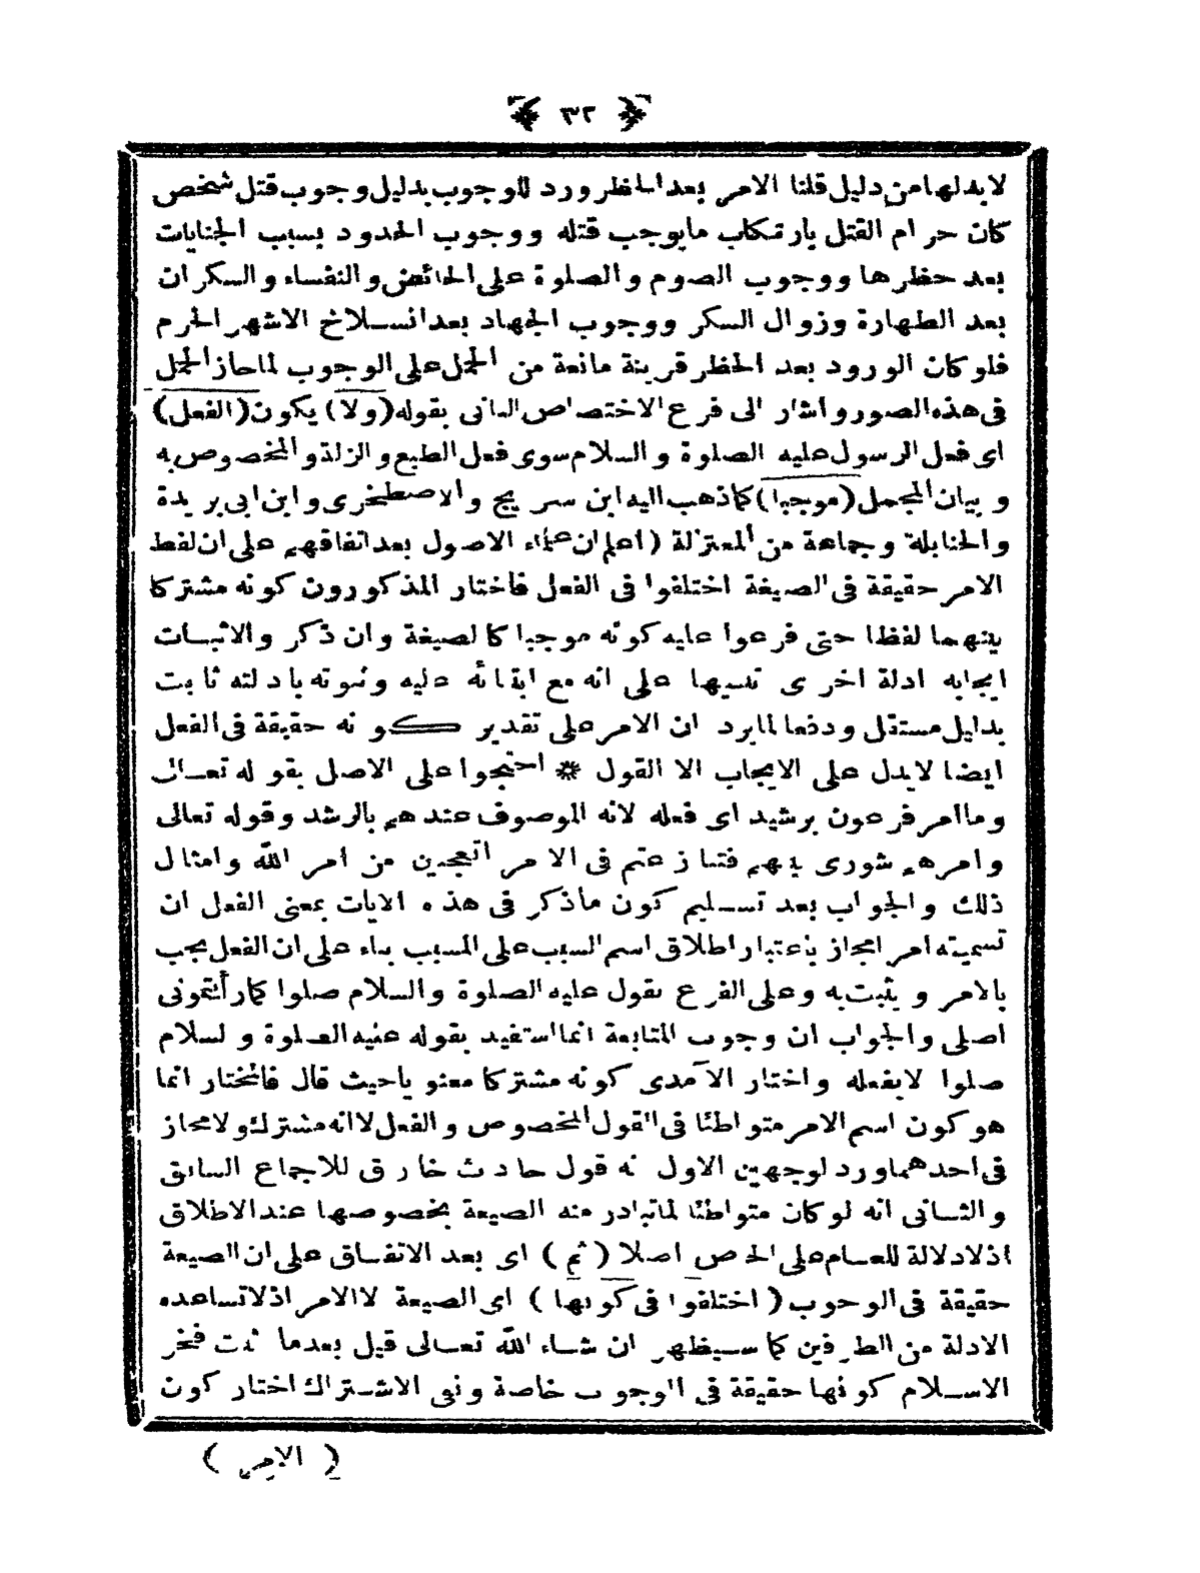 ﴿ ٣٢ ﴾
لابد لها من دليل قلنا الامر بعد الحظر ورد للوجوب بدليل وجوب قتل شخص
كان حرام القتل بارتكاب مايوجب قتله ووجوب الحدود بسبب الجنايات
بعد حظرها ووجوب الصوم والصلوة على الحائض والنفساء والسكران
بعد الطهارة وزوال السكر ووجوب الجهاد بعد انسلاخ الاشهر الحرم
فلو كان الورود بعد الحظر قرينة مانعة من الحمل على الوجوب لما جاز الحمل
فى هذه الصور واشار الى فرع الاختصاص الثانى بقوله (ولا) يكون (الفعل)
اى فعل الرسول عليه الصلوة والسلام سوى فعل الطبع والزلة والمخصوص به
وبيان المجمل (موجبا) كما ذهب اليه ابن سريج والاصطخرى وابن ابى بريدة
والحنابلة وجماعة من المعتزلة (اعلم ان علماء الاصول بعد اتفاقهم على ان لفظ
الامر حقيقة فى الصيغة اختلفوا فى الفعل فاختار المذكورون كونه مشتركا
بينهما لفظا حتى فرعوا عليه كونه موجبا كالصيغة وان ذكر والاثبات
ايجابه ادلة اخرى تنبيها على انه مع ابقائه عليه وثبوته بادلته ثابت
بدليل مستقل ودفعا لما يرد ان الامر على تقدير كونه حقيقة فى الفعل
ايضا لايدل على الايجاب الا القول * احتجوا على الاصل بقوله تعالى
وما امر فرعون برشيد اى فعله لانه الموصوف عندهم بالرشد وقوله تعالى
وامرهم شورى بينهم فتنازعتم فى الامر اتعجبين من امر الله وامثال
ذلك والجواب بعد تسليم كون ماذكر فى هذه الايات بمعنى الفعل ان
تسميته امر امجاز باعتبار اطلاق اسم السبب على المسبب بناء على ان الفعل يجب
بالامر ويثبت به وعلى الفرع بقول عليه الصلوة والسلام صلوا كما رأيتمونى
اصلى والجواب ان وجوب المتابعة انما استفيد بقوله عليه الصلوة ولسلام
صلوا لابفعله واختار الآمدى كونه مشتركا معنويا حيث قال فالمختار انما
هو كون اسم الامر متواطئا فى القول المخصوص والفعل لا انه مشترك ولا مجاز
فى احدهما ورد لوجهين الاول نه قول حادث خارق للاجماع السابق
والثانى انه لو كان متواطئا لماتبادر منه الصيغة بخصوصها عند الاطلاق
اذ لادلالة للعام على الخاص اصلا (ثم) اى بعد الاتفاق على ان الصيغة
حقيقة فى الوجوب (اختلفوا فى كونها) اى الصيغة لا الامر اذ لاتساعده
الادلة من الطرفين كما سيظهر ان شاء الله تعالى قيل بعدما ثبت فخر
الاسلام كونها حقيقة فى الوجوب خاصة ونفى الاشتراك اختار كون
( الامر )